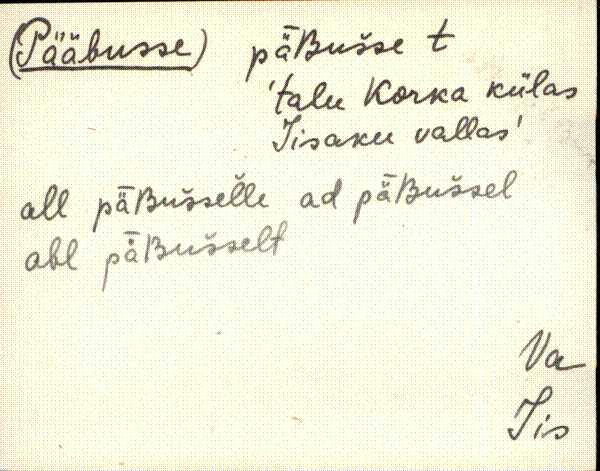 (Pääbusse) pǟBušse t
'talu Korka külas
Iisaku vallas'
all pǟBušselle ad pǟBušsel
abl pǟBušselt
Va
Iis